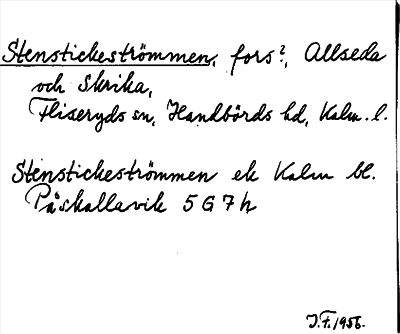 Stenstickeströmmen, fors?, Allseda
och Skrika,
Fliseryds sn, Handbörds hd, Kalm. l.
Stenstickeströmmen ek Kalm bl.
Påskallavik 5G7h
J.F. 1956.